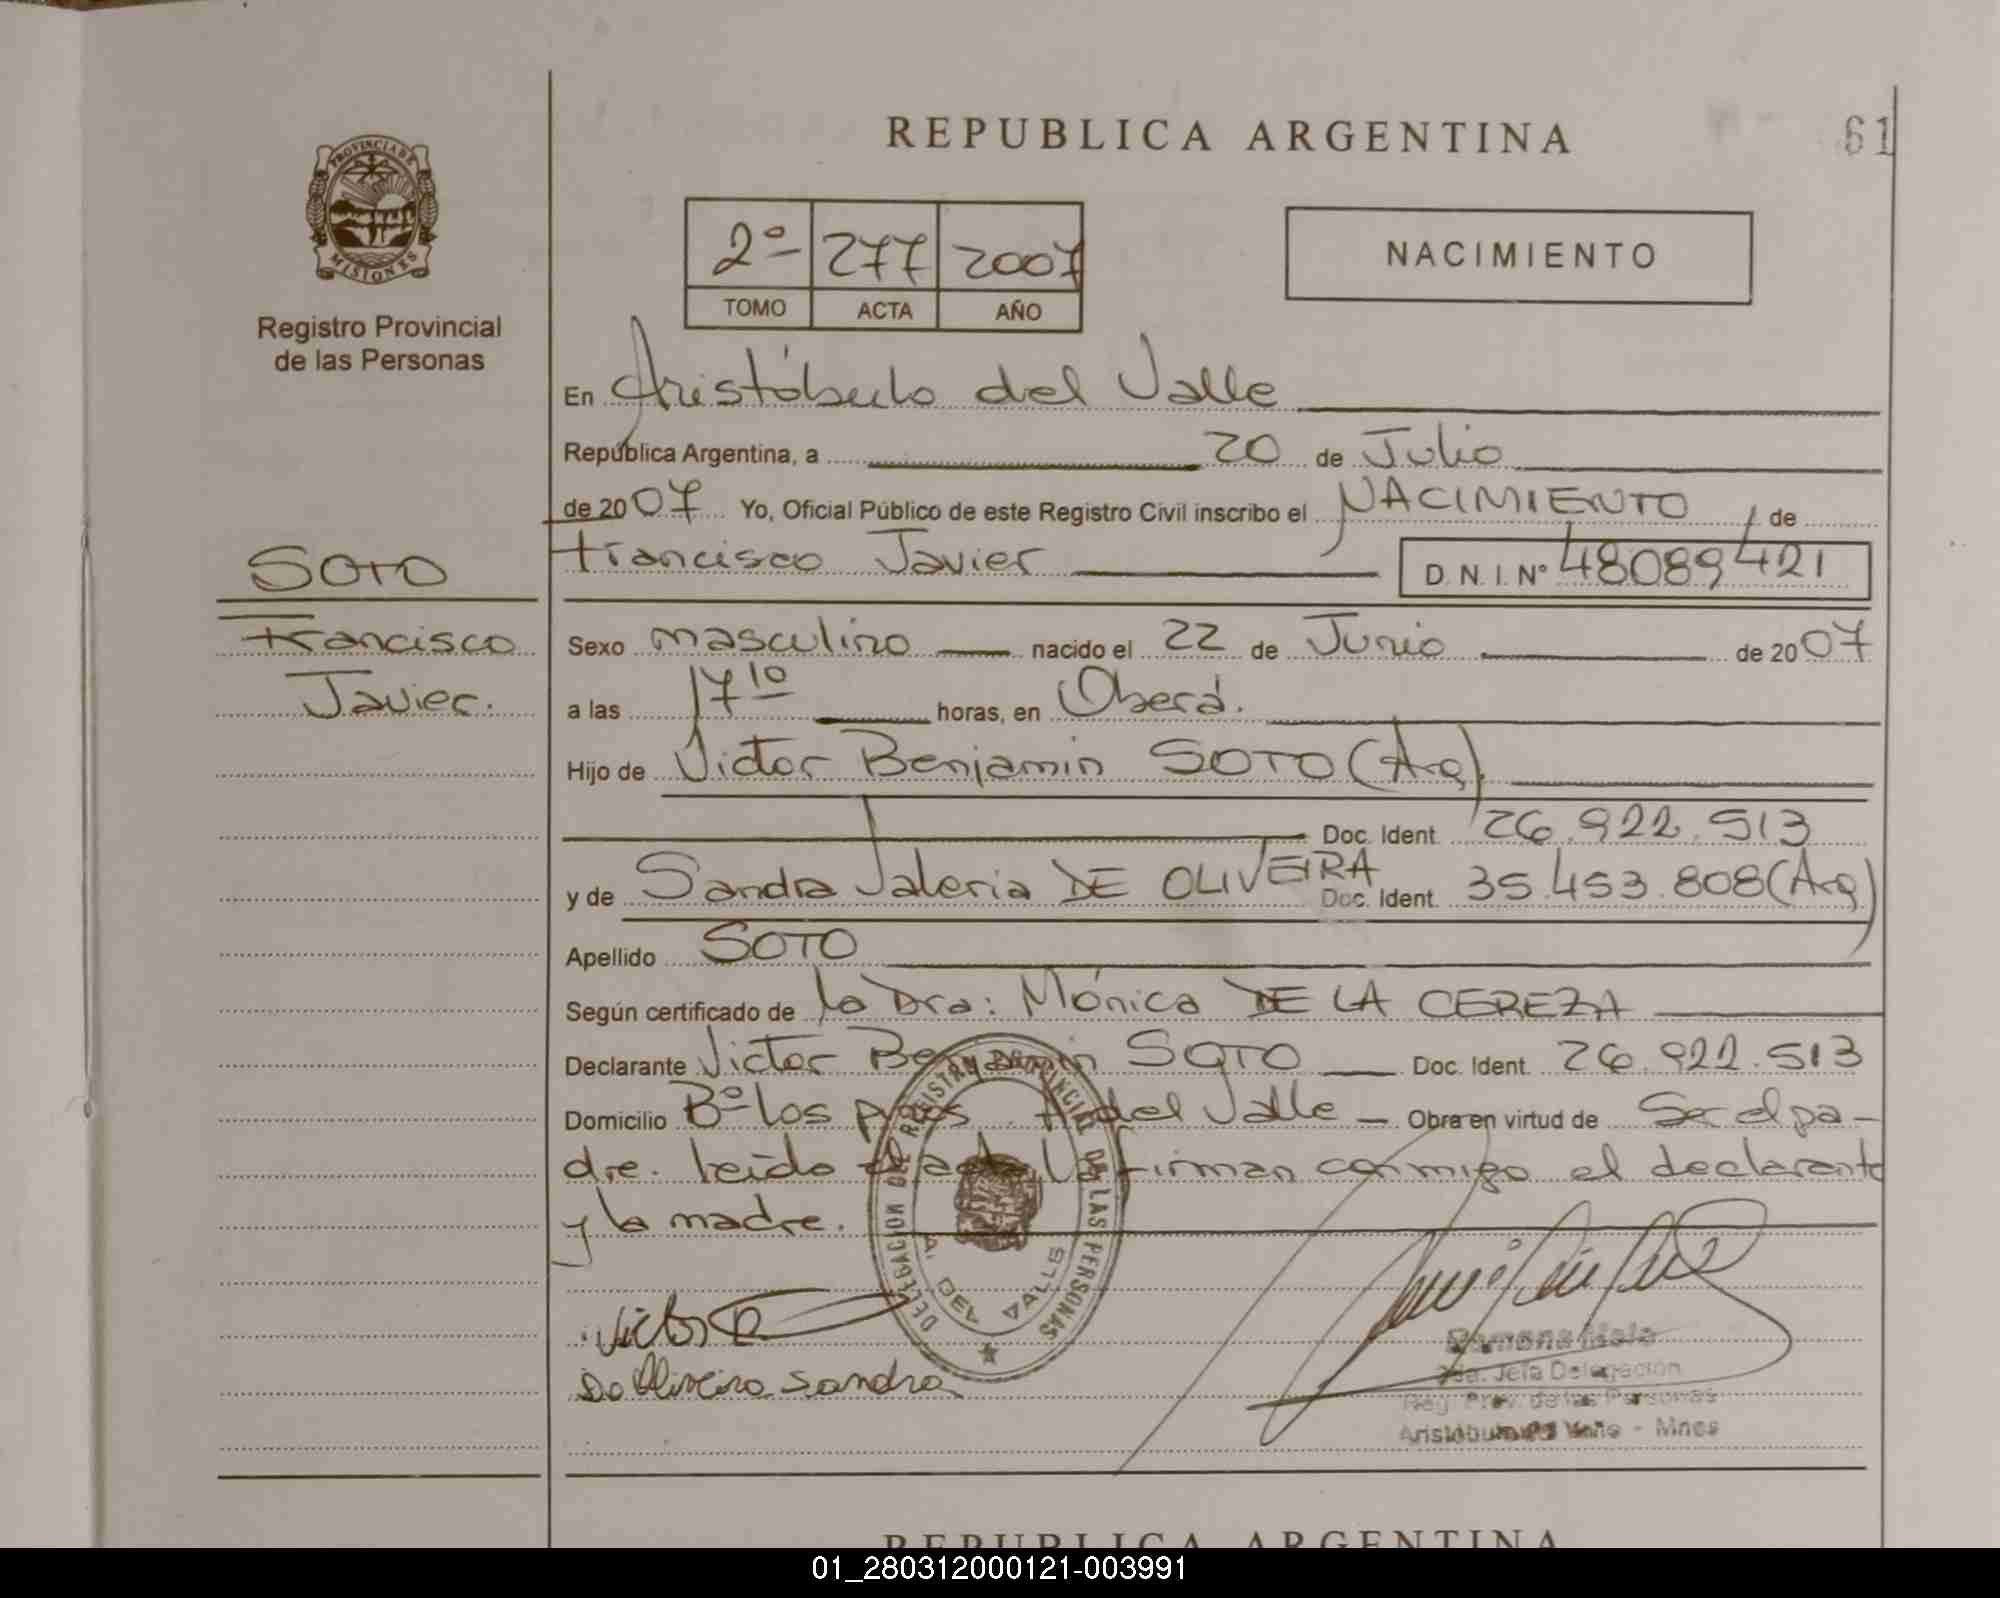 REPUBLICA ARGENTINA
61
PROVINCIA DE
MISIONES
Registro Provincial
de las Personas
2º 277 2007
TOMO ACTA AÑO
NACIMIENTO
En Aristóbulo del Valle
República Argentina, a 20 de Julio
de 2007 Yo, Oficial Público de este Registro Civil inscribo el NACIMIENTO de
SOTO
Francisco Javier D.N.I. Nº 48089421
Francisco
Javier.
Sexo masculino nacido el 22 de Junio de 2007
a las 17 10 horas, en Oberá.
Hijo de Victor Benjamin SOTO (Arg)
Doc. Ident. 26.922.513
y de Sandra Valeria DE OLIVEIRA Doc. Ident. 35.453.808 (Arg)
Apellido SOTO
Según certificado de la Dra: Mónica DE LA CEREZA
Declarante Victor Benjamin SOTO Doc. Ident. 26.922.513
Domicilio Bº los pinos A del Valle Obra en virtud de Ser el pa-
dre. Leído el acta, la firman conmigo el declarante
y la madre.
DELEGACION DEL REGISTRO PROVINCIAL DE LAS PERSONAS
A. DEL VALLE
Victor
De Oliveira Sandra
Ramona
2da. Jefa Delegación
Reg. Prov. de las Personas
Aristóbulo del Valle - Mnes
REPUBLICA ARGENTINA
01_280312000121-003991